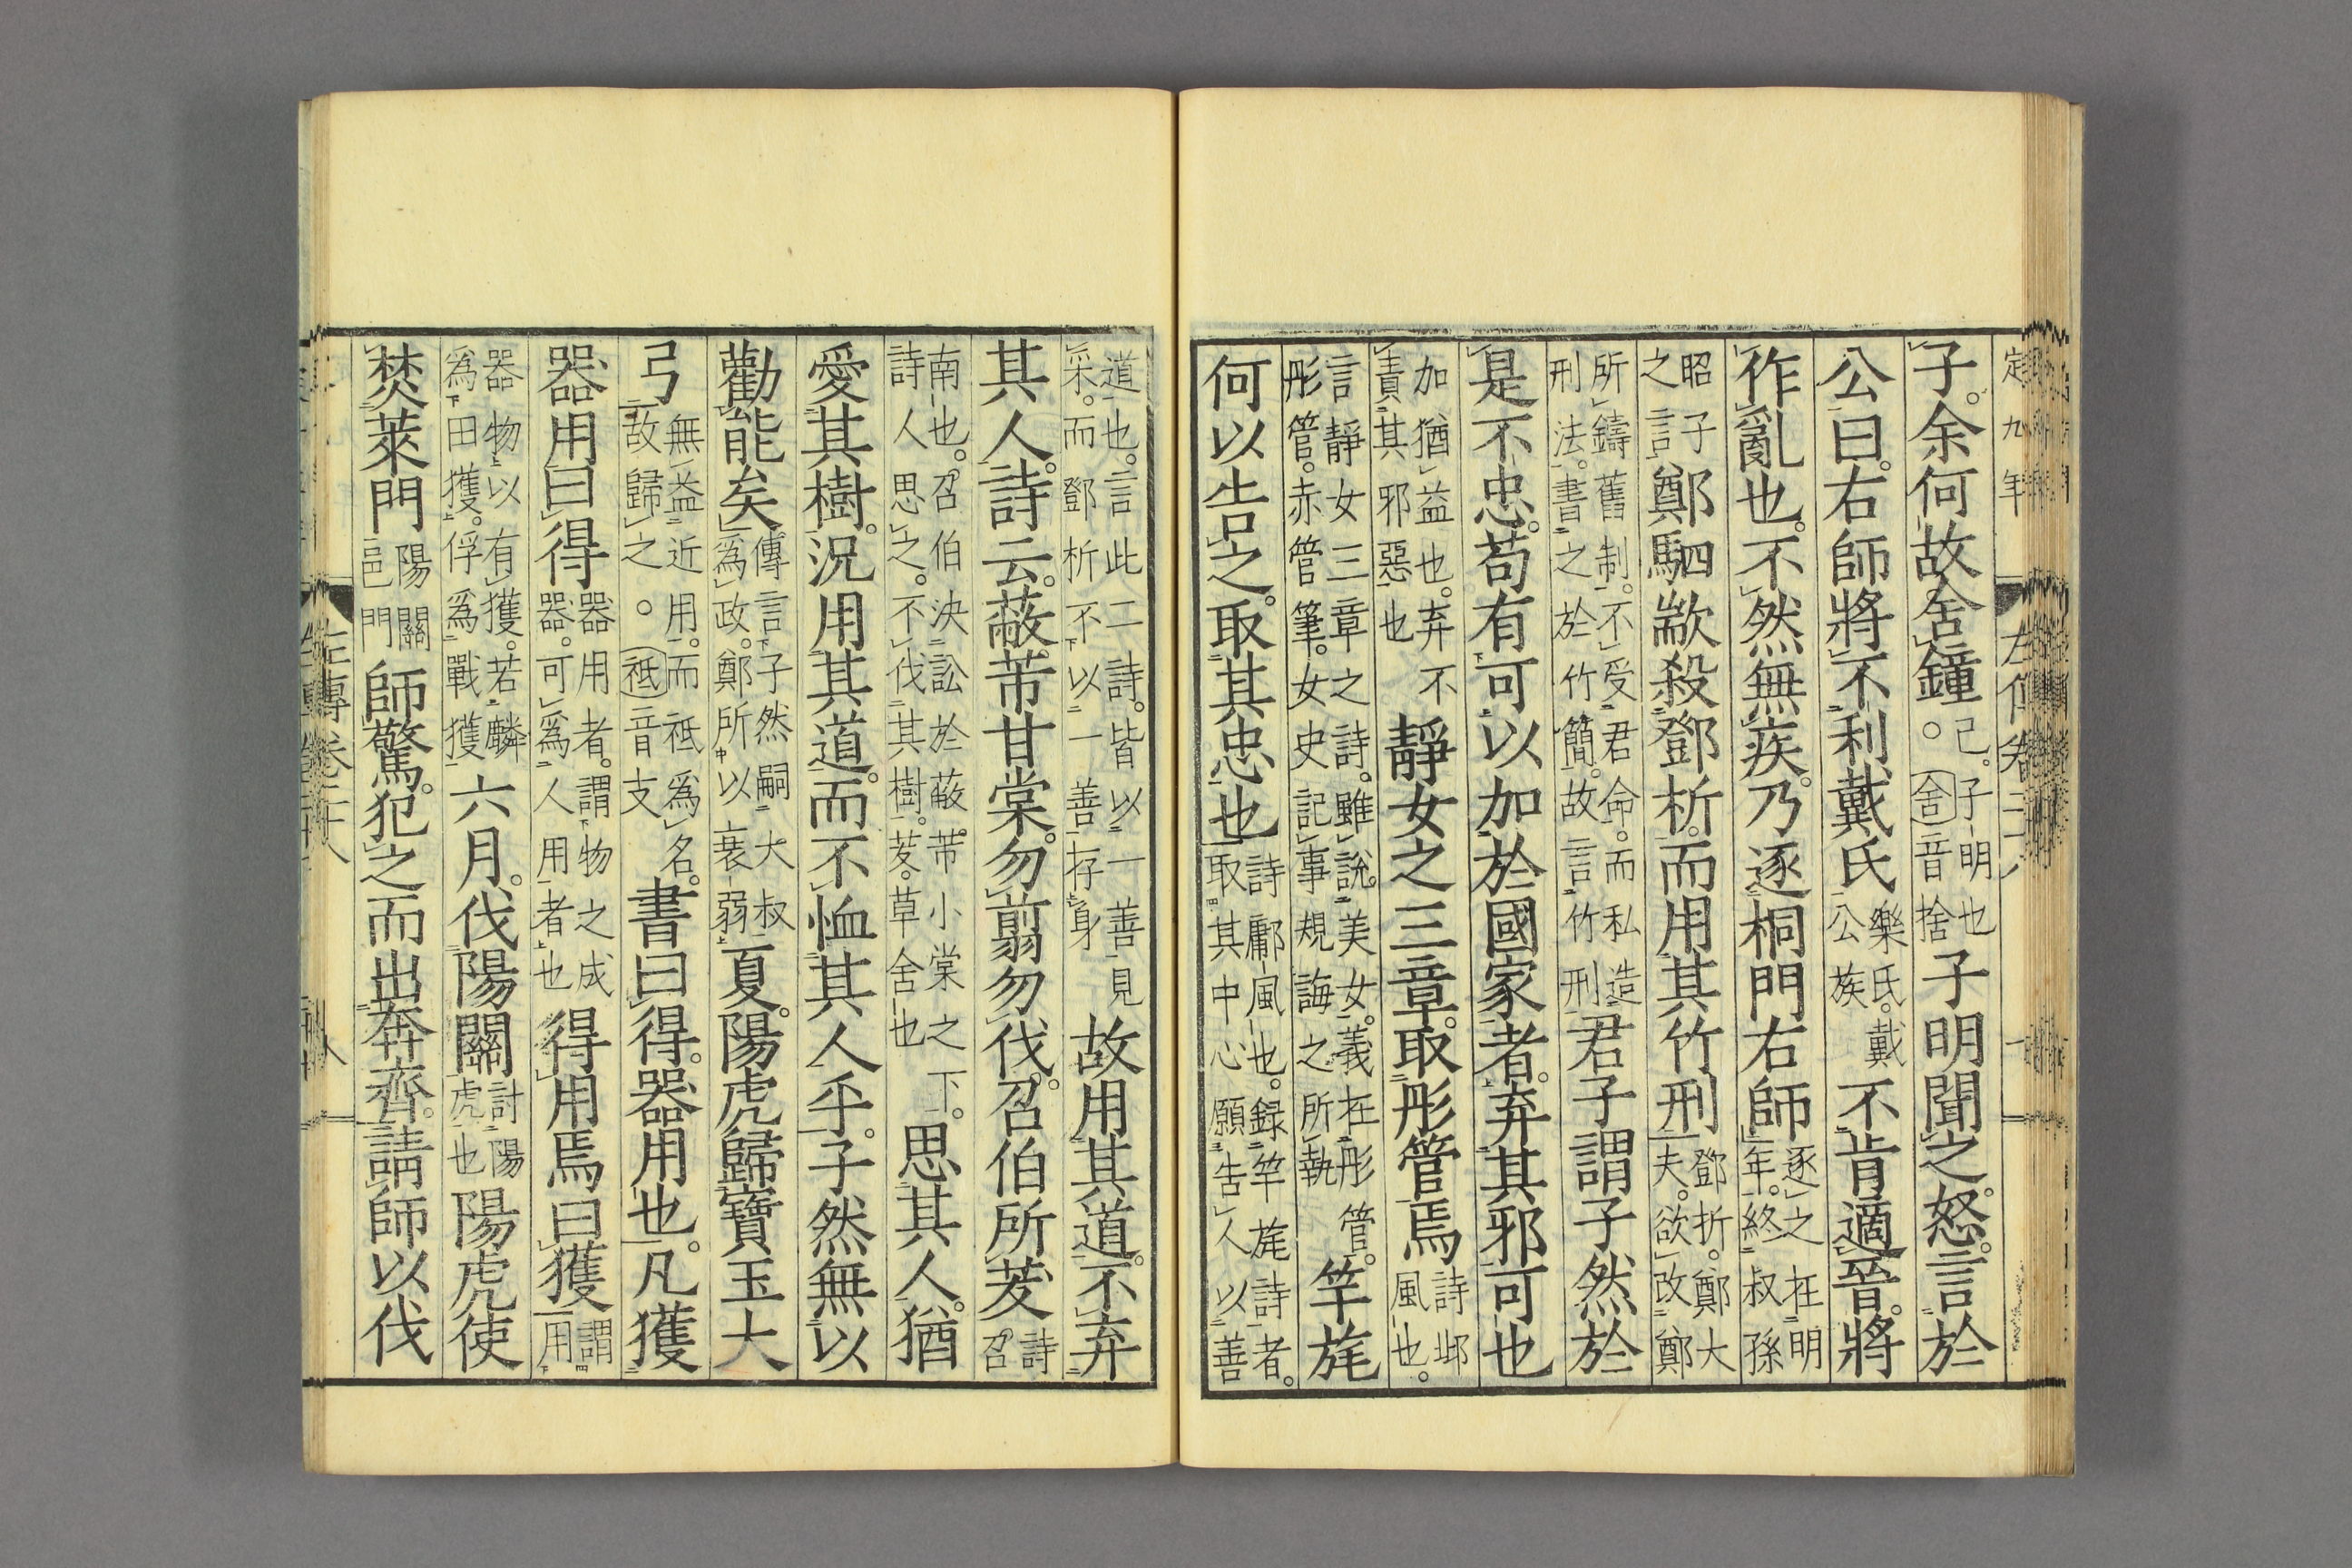 定九年
子。余何故舍鐘。己。子明也。舍音捨子明聞之。怒。言於
公曰。右師將不利戴氏樂氏。戴公族不肯適晉。將
作亂也。不然無疾。乃逐桐門右師逐之在明年。終叔孫
昭子之言鄭駟歂殺鄧析。而用其竹刑鄧折。鄭大夫。欲改鄭
所鑄舊制。不受君命。而私造刑法。書之於竹簡。故言竹刑君子謂子然於
是不忠。苟有可以加於國家者。弃其邪可也
加猶益也。弃不責其邪惡也靜女之三章。取彤管焉詩邶風也。
言靜女三章之詩。雖說美女。義在彤管。彤管。赤管筆。女史記事規誨之所執竿旄
何以告之。取其忠也詩鄘風也。録竿旄詩者。取其中心願告人以善
道也。言此二詩。皆以一善見采。而鄧析不以一善存身故用其道。不弃
其人。詩云。蔽芾甘棠。勿翦勿伐。召伯所茇詩召
南也。召伯決訟於蔽芾小棠之下。詩人思之。不伐其樹。茇。草舍也思其人。猶
愛其樹。況用其道。而不恤其人乎。子然無以
勸能矣傳言子然嗣大叔爲政。鄭所以衰弱夏。陽虎歸寶玉大
弓無益近用。而祗爲名。故歸之。祗音支書曰得。器用也。凡獲
器用曰得器用者。謂物之成器。可爲人用者也得用焉曰獲謂用
器物以有獲。若麟爲田獲。俘爲戰獲六月。伐陽關討陽虎也陽虎使
焚萊門陽關邑門師驚。犯之而出。奔齊。請師以伐
左傳卷二十八